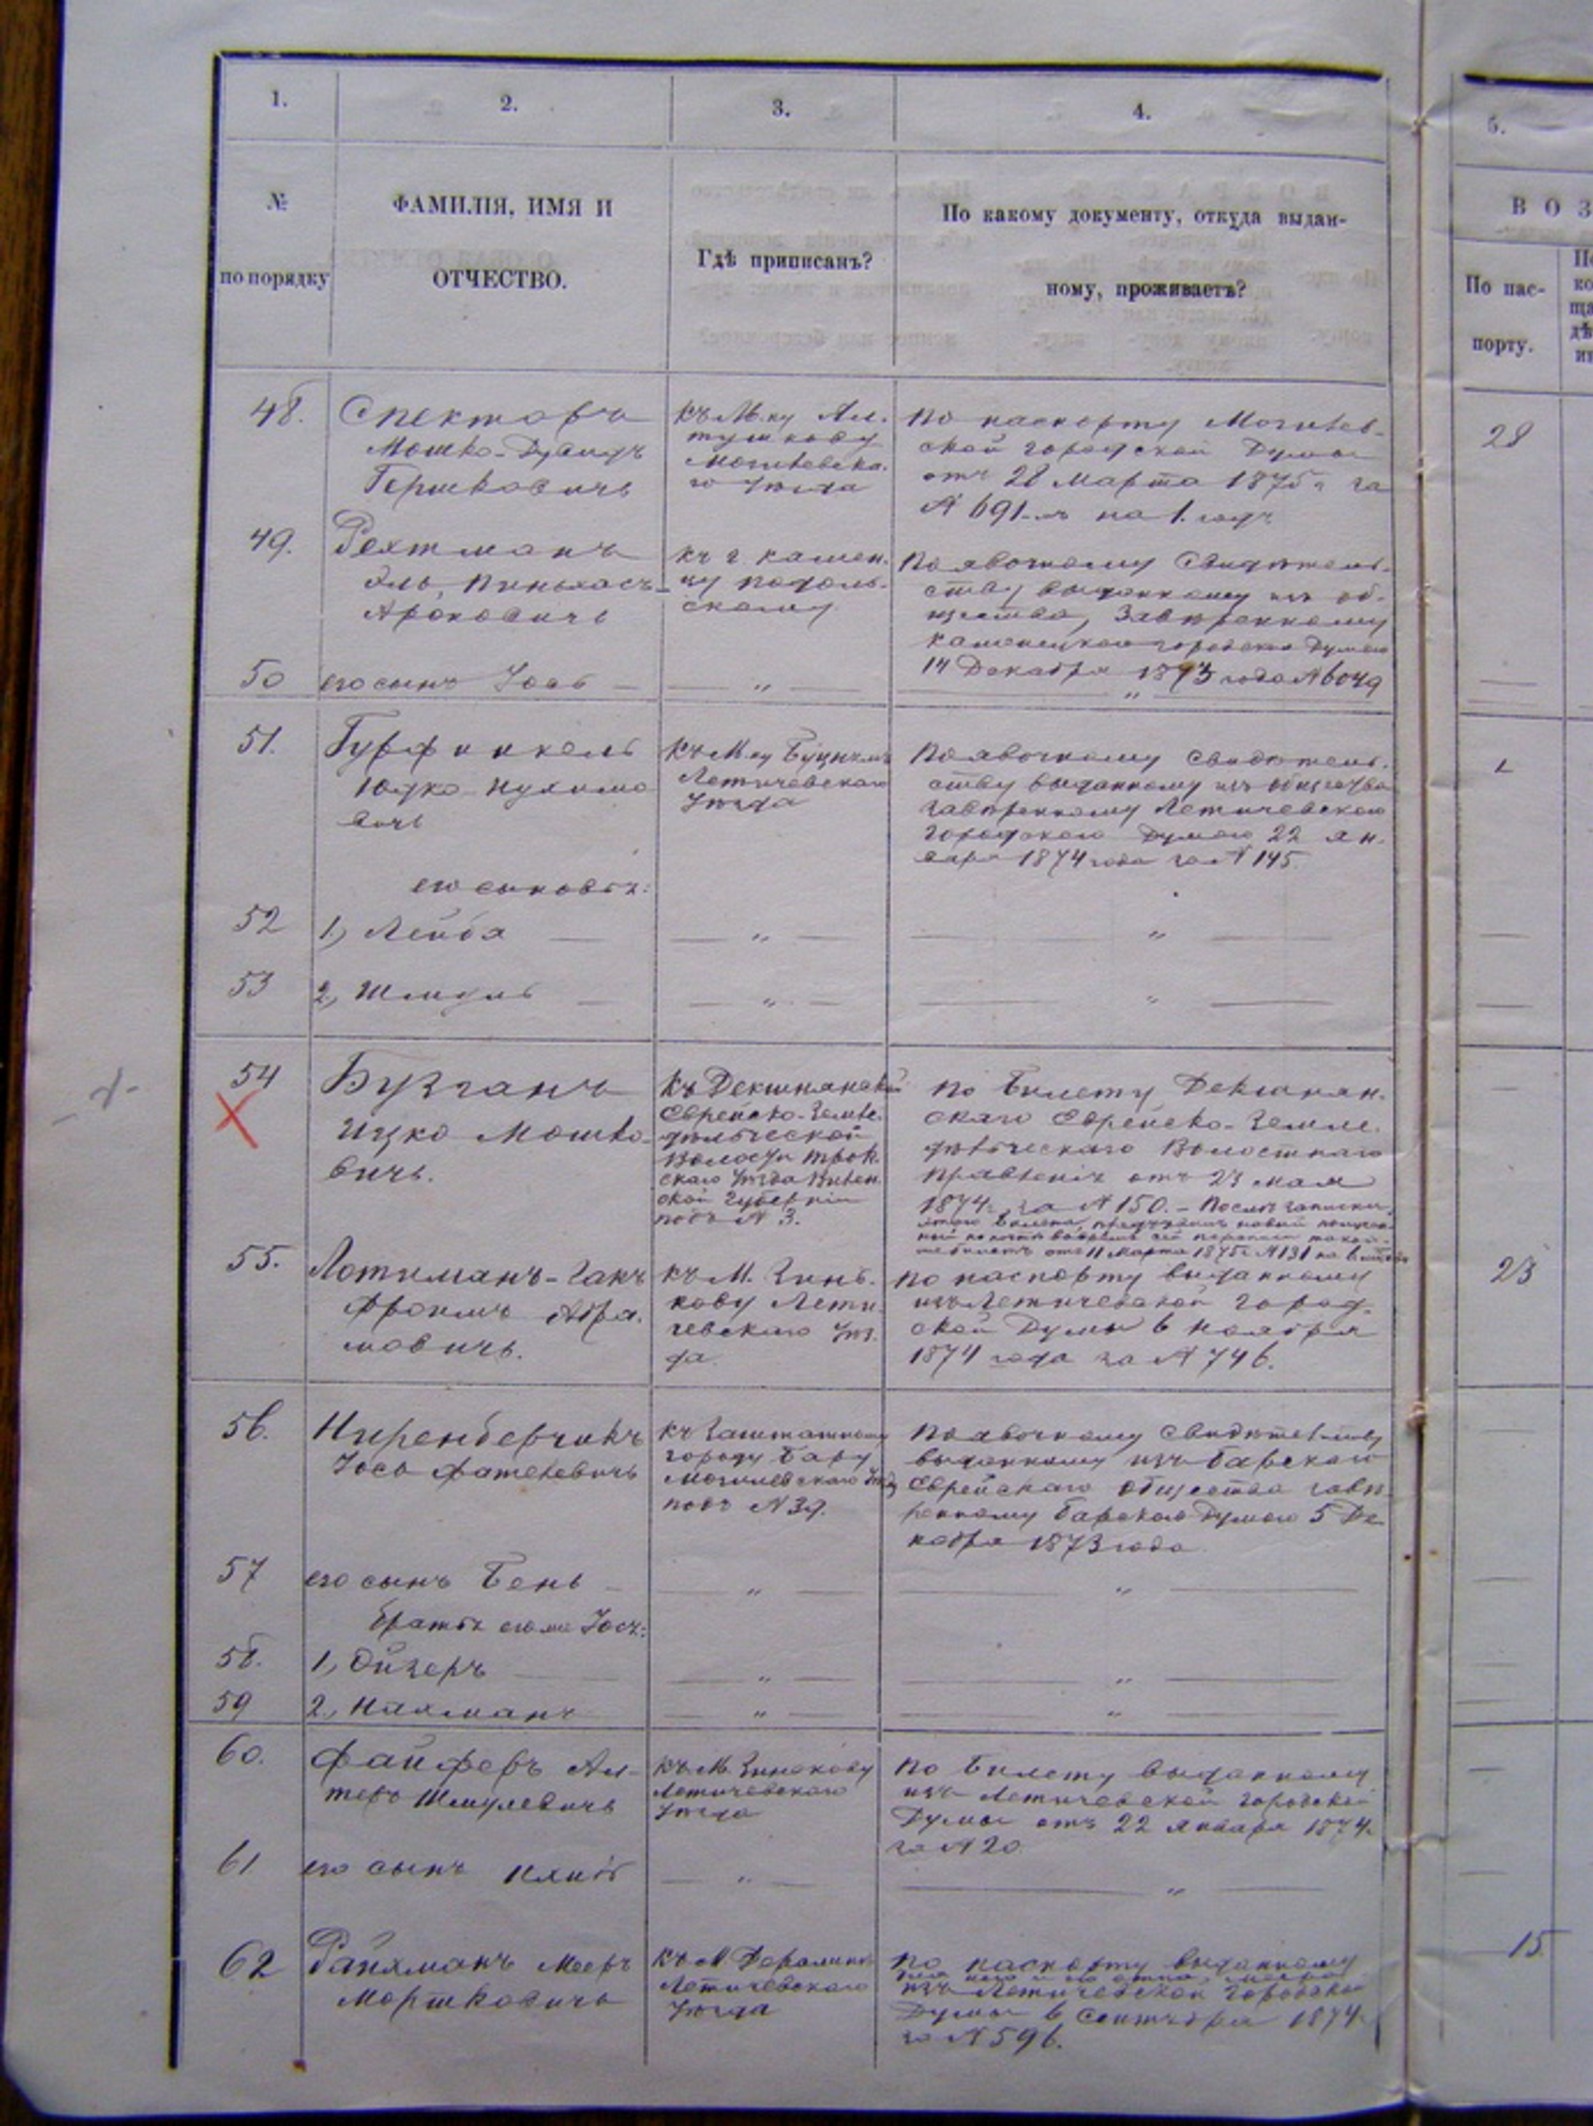 1.
2.
3.
4.
5.
№
по порядку
ФАМИЛІЯ, ИМЯ И
ОТЧЕСТВО.
Гдѣ приписанъ?
По какому документу, откуда выдан-
ному, проживаетъ?
В О З
По пас-
порту.
48.
Спекторъ
Мошко-Дувидъ
Гершковичъ
къ М.ку Ал.
тушкову
Могилевска.
го Уѣзда
По паспорту Могилев-
ской городской Думы
отъ 28 Марта 1875 г за
№ 691-мъ на 1. годъ
28
49.
Рехтманъ
Эль, Пиньхасъ
Ароновичъ
къ г. Камен.
цу Подоль-
скому
По явочному Свидѣтель-
ству выданному изъ об-
щества, Завѣренному
Каменецкою городскою Думою
14 Декабря 1873 года № 6049
50
его сынъ Іось — „ — „ —
51.
Гурфинкель
Юдко Нухимо
вичъ
къ М.ку
Летичевскаго
Уѣзда
По явочному Свидѣтель.
ству выданному изъ общества
завѣренному Летичевскою
Городскою Думою 22 ян.
варя 1874 года за № 145.
его сыновья:
52
1., Лейба — „ — „ —
53
2., Шмуль — „ — „ —
54
Бузганъ
Ицко Мошко-
вичъ.
къ Декшнянской
Еврейско-Земле.
дѣльческой
Волости Трок.
скаго Уѣзда Вилен.
ской Губерніи
подъ № 3.
По Билету Декшнян.
скаго Еврейско-Земле.
дѣльческаго Волостнаго
Правленія отъ 23 мая
1874 г. за № 150. – Послѣ записки
этого билета,
билетъ отъ 11 Марта 1875 г № 131 на
55.
Лотиманъ-Гакъ
Фроимъ Абра.
мовичъ.
къ М. Зинь.
кову Лети.
чевскаго Уѣз.
да.
По паспорту выданному
изъ Летичевской Город.
ской Думы 6 Ноября
1874 года за № 746.
23
56.
Ниренбергикъ
Іось Фателевичъ
къ Заштатному
городу Бару
Могилевскаго Уѣзда
подъ № 39.
По явочному Свидѣтельству
выданному изъ Барскаго
Еврейскаго общества завѣ
ренному Барскою Думою 5 Де
кабря 1873 года.
57
его сынъ Бень — „ — „ —
братья его же Іося:
58.
1., Ойзеръ — „ — „ —
59
2., Нахманъ — „ — „ —
60.
Файферъ Ал-
теръ Шмулевичъ
къ М. Зинькову
Летичевскаго
Уѣзда
По Билету выданному
изъ Летичевской Городской
Думы отъ 22 Января 1874 г.
за № 20
61
его сынъ — „ — „ —
62
Райхманъ Мееръ
Мортковичъ
къ М. Деражнѣ
Летичевскаго
Уѣзда
По паспорту выданному
изъ Летичевской Городской
Думы 6 Сентября 1874 г.
за № 596.
15